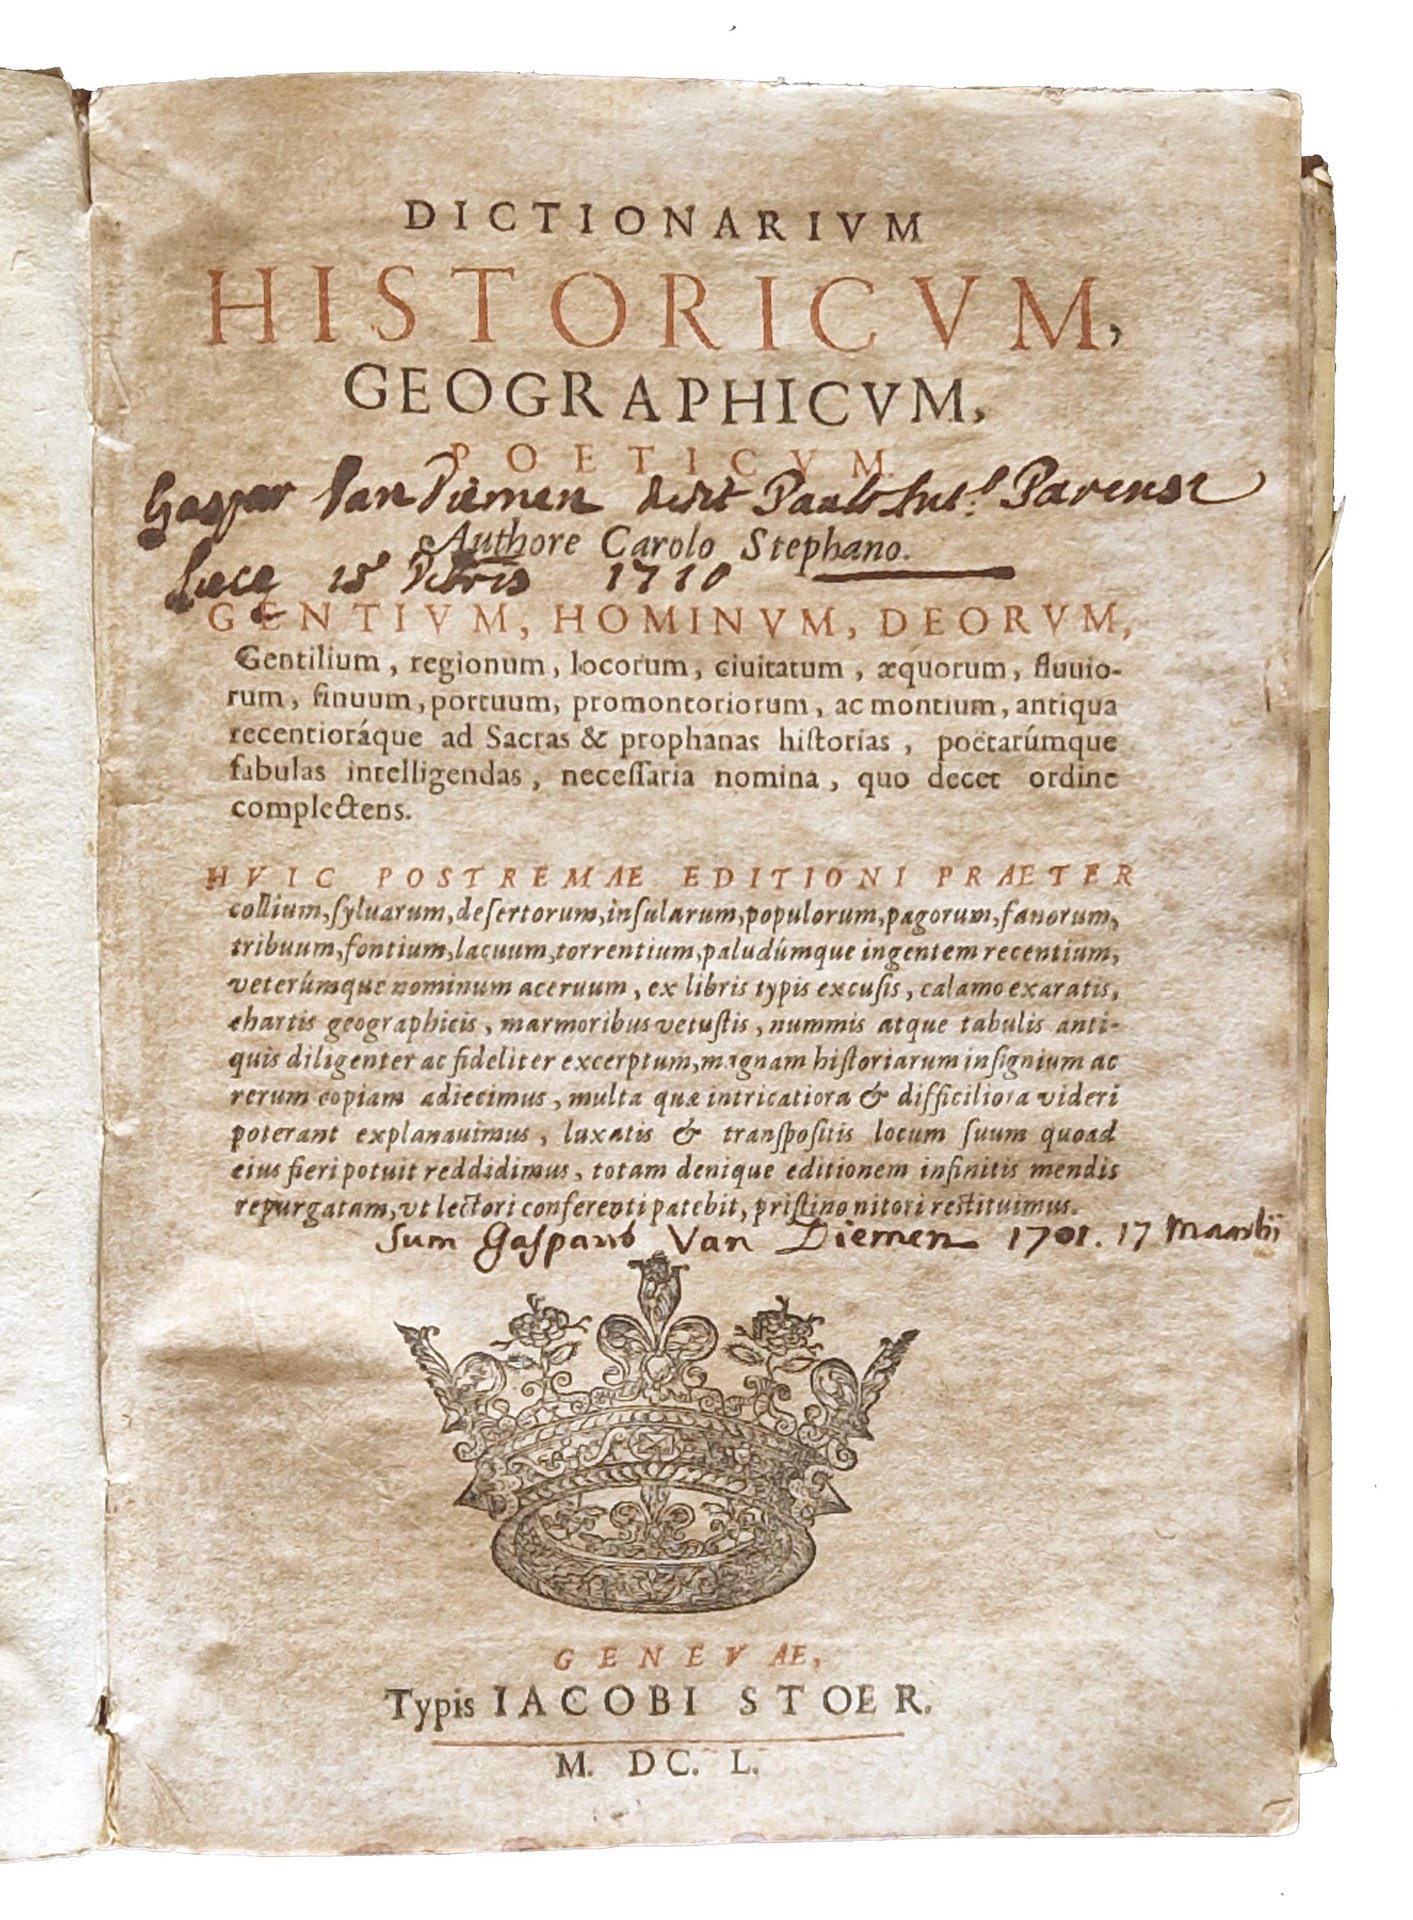 DICTIONARIVM
HISTORICVM,
GEOGRAPHICVM,
POETICVM
Gaspar Van Diemen dedit Paulo
Authore Carolo Stephano.
15 1710
GENTIVM, HOMINVM, DEORVM,
Gentilium, regionum, locorum, ciuitatum, æquorum, fluuio-
rum, ſinuum, portuum, promontoriorum, ac montium, antiqua
recentioráque ad Sacras & prophanas hiſtorias, poëtarúmque
fabulas intelligendas, neceſſaria nomina, quo decet ordine
complectens.
HVIC POSTREMAE EDITIONI PRAETER
collium, ſyluarum, deſertorum, inſularum, populorum, pagorum, fanorum,
tribuum, fontium, lacuum, torrentium, paludúmque ingentem recentium,
veterúmque nominum aceruum, ex libris typis excuſis, calamo exaratis,
chartis geographicis, marmoribus vetuſtis, nummis atque tabulis anti-
quis diligenter ac fideliter excerptum, magnam hiſtoriarum inſignium ac
rerum copiam adiecimus, multa quæ intricatiora & difficiliora videri
poterant explanauimus, luxatis & tranſpoſitis locum ſuum quoad
eius fieri potuit reddidimus, totam denique editionem infinitis mendis
repurgatam, vt lectori conferenti patebit, priſtino nitori reſtituimus.
Sum Van Diemen 1701. 17
GENEVAE,
Typis IACOBI STOER.
M. DC. L.